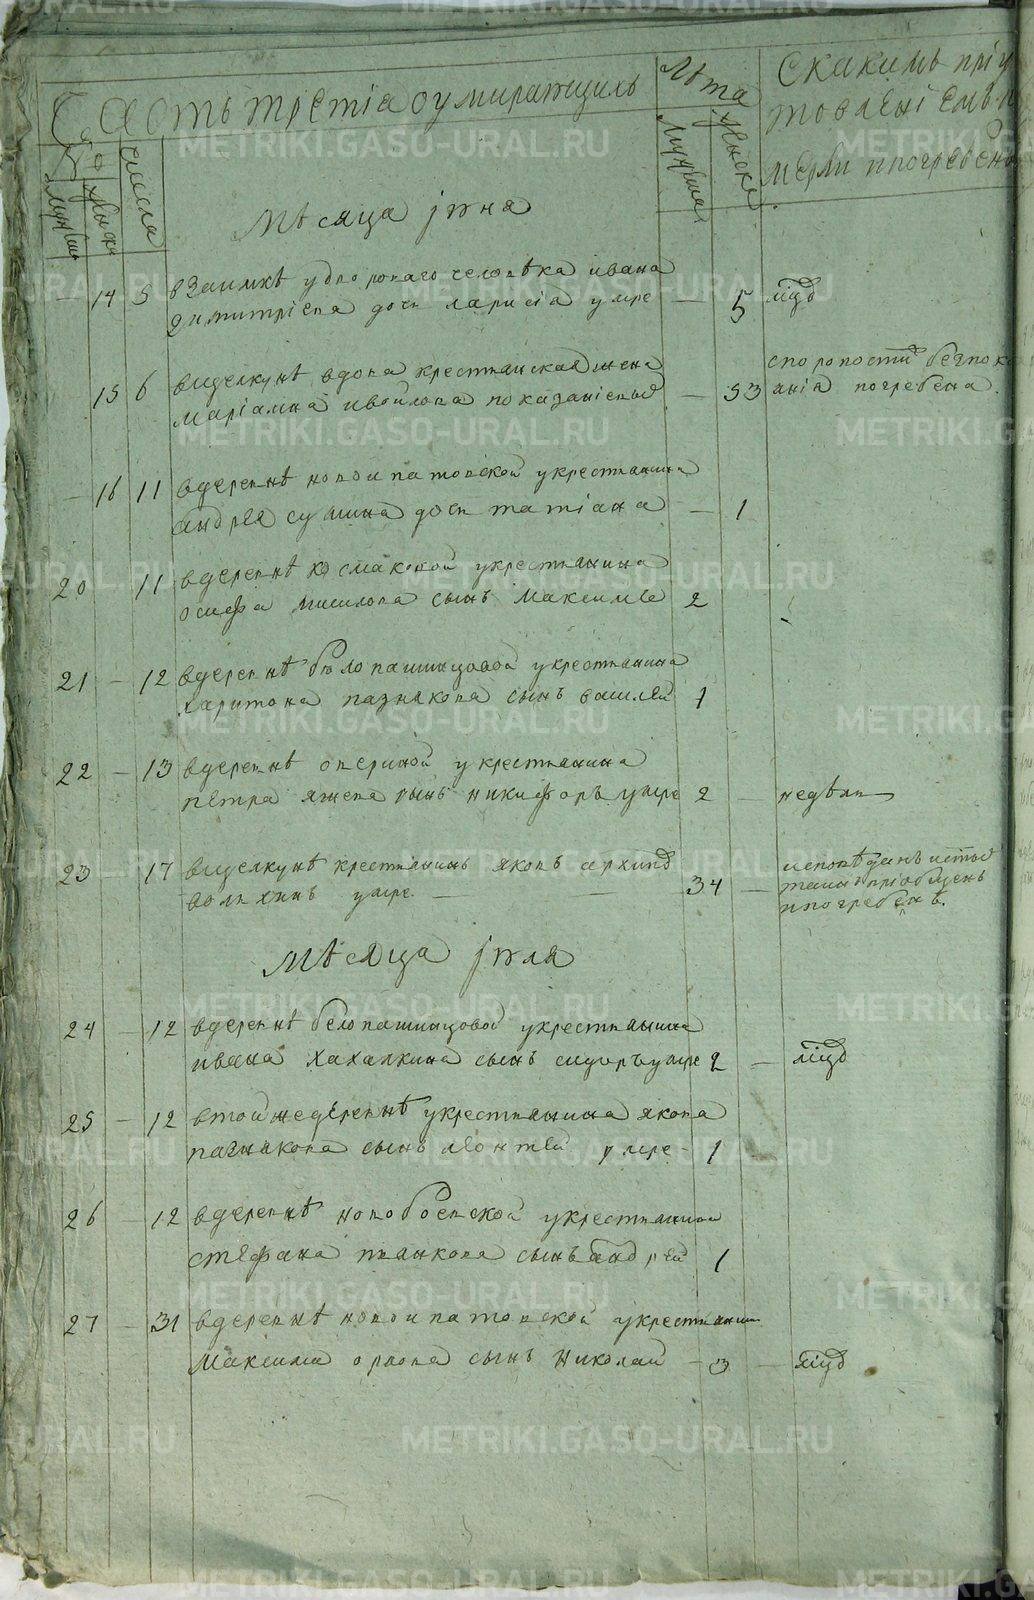 Часть третiа о умирающихъ
Лѣта
Скакимъ прiу
товленiемъ
мерли ипогребены
Мужеска
Женска
числа
Мужеска
Женска
Мѣсяца iюна
14 5 взаимкѣ удворового человѣка ивана
димитрiева дочь лариса умре — 5 мцъ
15 6 вщелкунѣ вдова крестьянская жена
марiамна ивойлова — 53
скоропостиж безпока
анiя погребена
16 11 вдеревнѣ новоипатовской укрестьянина
андрея сушина дочь татiана — 1
20 11 вдеревнѣ космаковой укрестьянина
осифа сынъ максимъ 2
21 — 12 вдеревнѣ белопашнцовой укрестьянина
харитона пазнакова сынъ василей 1
22 — 13 вдеревнѣ опериной укрестьянина
петра сынъ никифоръ умре 2 — недѣли
23 — 17 вщелкунѣ крестьянинъ яковъ архипов
волхинъ умре — 34 —
исповѣданъ истыхъ
таинъ прiобщенъ
ипогребенъ.
мѣсяца iюля
24 — 12 вдеревнѣ белопашнцовой укрестьянина
ивана хахалкина сынъ сидоръ умре 2 — мцъ
25 — 12 втойже деревнѣ укрестьянина якова
пазнакова сынъ леонтей умре — 1
26 — 12 вдеревнѣ новобоевской укрестьянина
стефана пьянкова сынъ андрей 1
27 — 31 вдеревнѣ новоипатовской укрестьянина
максима орлова сынъ николай — 3 — мцъ
METRIKI.GASO-URAL.RU